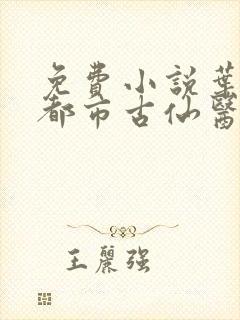 免費小説葉
都市古仙醫
王麗强